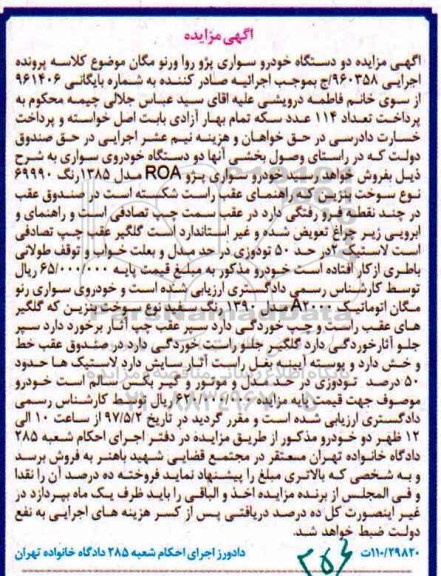 آگهی مزایده
آگهی مزایده دو دستگاه خودرو سواری پژو روا ورنو مگان موضوع کلاسه پرونده
اجرایی ۹۶۰۳۵۸/ج بموجب اجرائیه صادر کننده به شماره بایگانی ۹۶۱۴۰۶
از سوی خانم فاطمه درویشی علیه اقای سید عباس جلالی چیمه محکوم به
پرداخت تعداد ۱۱۴ عدد سکه تمام بهار آزادی بابت اصل خواسته و پرداخت
خسارت دادرسی در حق خواهان و هزینه نیم عشر اجرایی در حق صندوق
دولت که در راستای وصول بخشی آنها دو دستگاه خودروی سواری به شرح
ذیل بفروش خواهد رسید خودرو سواری پژو ROA مدل ۱۳۸۵رنگ ۶۹۹۹۰
نوع سوخت بنزین که راهنمای عقب راست شکسته است در صندوق عقب
در چند نقطه فرو رفتگی دارد در عقب سمت چپ تصادفی است و راهنمای و
ابرویی زیر چراغ تعویض شده و غیر استاندارد است گلگیر عقب چپ تصادفی
است لاستیک ۲در حد ۵۰ تودوزی در حد مدل و بعلت خواب و توقف طولانی
باطری از کار افتاده است خودرو مذکور به مبلغ قیمت پایه ۶۵/۰۰۰/۰۰۰ ریال
توسط کارشناس رسمی دادگستری ارزیابی شده است و خودروی سواری رنو
مگان اتوماتیک A۲۰۰۰ مدل ۱۳۹۰ رنگ نوع سوخت بنزین که گلگیر
های عقب راست و چپ خوردگی دارد سپر عقب چپ آثار برخورد دارد سپر
جلو آثارخوردگی دارد گلگیر جلو راست خوردگی دارد در صندوق عقب خط
و خش دارد و پوسته آیینه بغل راست آثار سایش دارد لاستیک ها حدود
۵۰ درصد تودوزی در حد مدل و موتور و گیر بکس سالم است خودرو
موصوف جهت قیمت پایه مزایده ریال توسط کارشناس رسمی
دادگستری ارزیابی شده است و مقرر گردید در تاریخ ۹۷/۵/۲ از ساعت ۱۰ الی
۱۲ ظهر دو خودرو مذکور از طریق مزایده در دفتر اجرای احکام شعبه ۲۸۵
دادگاه خانواده تهران مستقر در مجتمع قضایی شهید باهنر به فروش برسد
و به شخصی که بالاتری مبلغ را پیشنهاد نماید فروخته ده درصد آن را نقدا
و فی المجلس از برنده مزایده اخذ و الباقی را باید ظرف یک ماه بپردازد در
غیر اینصورت کل ده درصد دریافتی پس از کسر هزینه های اجرایی به نفع
دولت ضبط خواهد شد.
۱۱۰/۲۹۸۲۰ت دادورز اجرای احکام شعبه ۲۸۵ دادگاه خانواده تهران